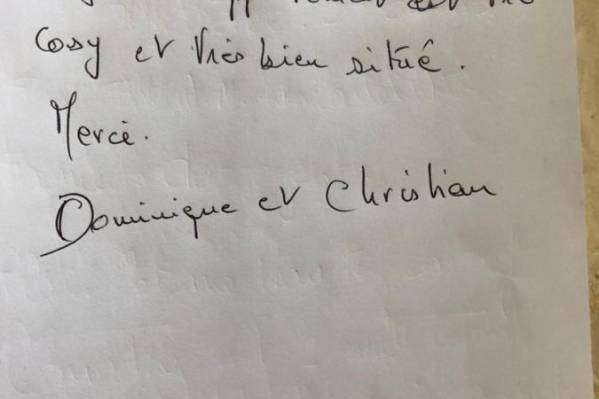 est très
Cosy et très bien situé.
Merci.
Dominique et Christian